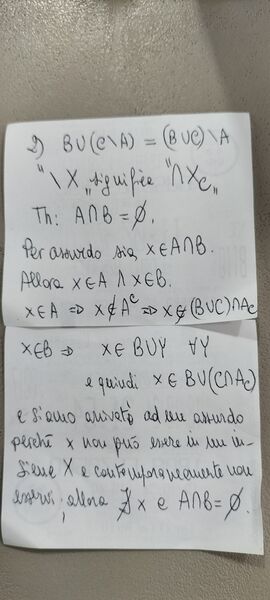 2) B∪(C\A) = (B∪C)\A
"\X„ significa "∩Xc„
Th: A∩B = ∅.
Per assurdo sia x∈A∩B.
Allora x∈A ∧ x∈B.
x∈A ⇒ x∉Aᶜ ⇒ x∉(B∪C)∩Ac
x∈B ⇒ x∈B∪Y ∀Y
e quindi x∈B∪(C∩Ac)
e siamo arrivati ad un assurdo
perché x non può essere in un in-
sieme X e contemporaneamente non
esservi; allora ∄x e A∩B=∅.